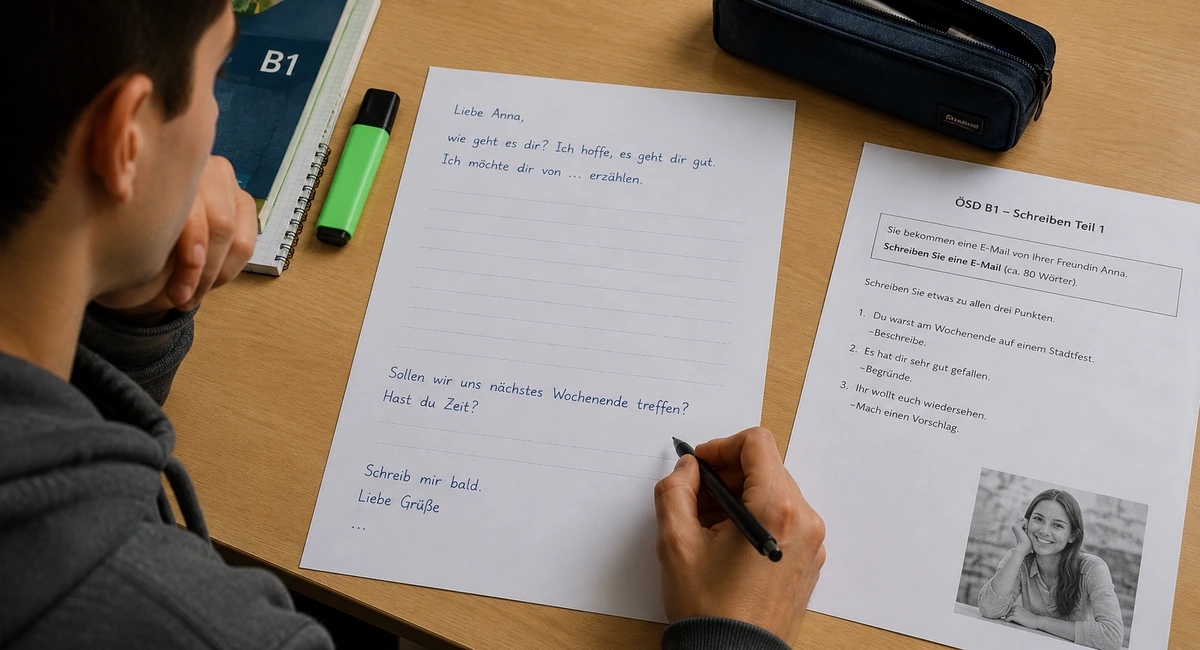 B1
Liebe Anna,
wie geht es dir? Ich hoffe, es geht dir gut.
Ich möchte dir von ... erzählen.
Sollen wir uns nächstes Wochenende treffen?
Hast du Zeit?
Schreib mir bald.
Liebe Grüße
...
ÖSD B1 – Schreiben Teil 1
Sie bekommen eine E-Mail von Ihrer Freundin Anna.
Schreiben Sie eine E-Mail (ca. 80 Wörter).
Schreiben Sie etwas zu allen drei Punkten.
1. Du warst am Wochenende auf einem Stadtfest.
–Beschreibe.
2. Es hat dir sehr gut gefallen.
–Begründe.
3. Ihr wollt euch wiedersehen.
–Mach einen Vorschlag.